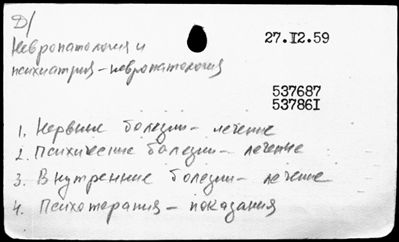 Д/
27.I2.59
Невропатология и
психиатрия – невропатология
537687
53786I
1. Нервные болезни – лечение
2. Психические болезни – лечение
3. Внутренние болезни – лечение
4. Психотерапия – показания